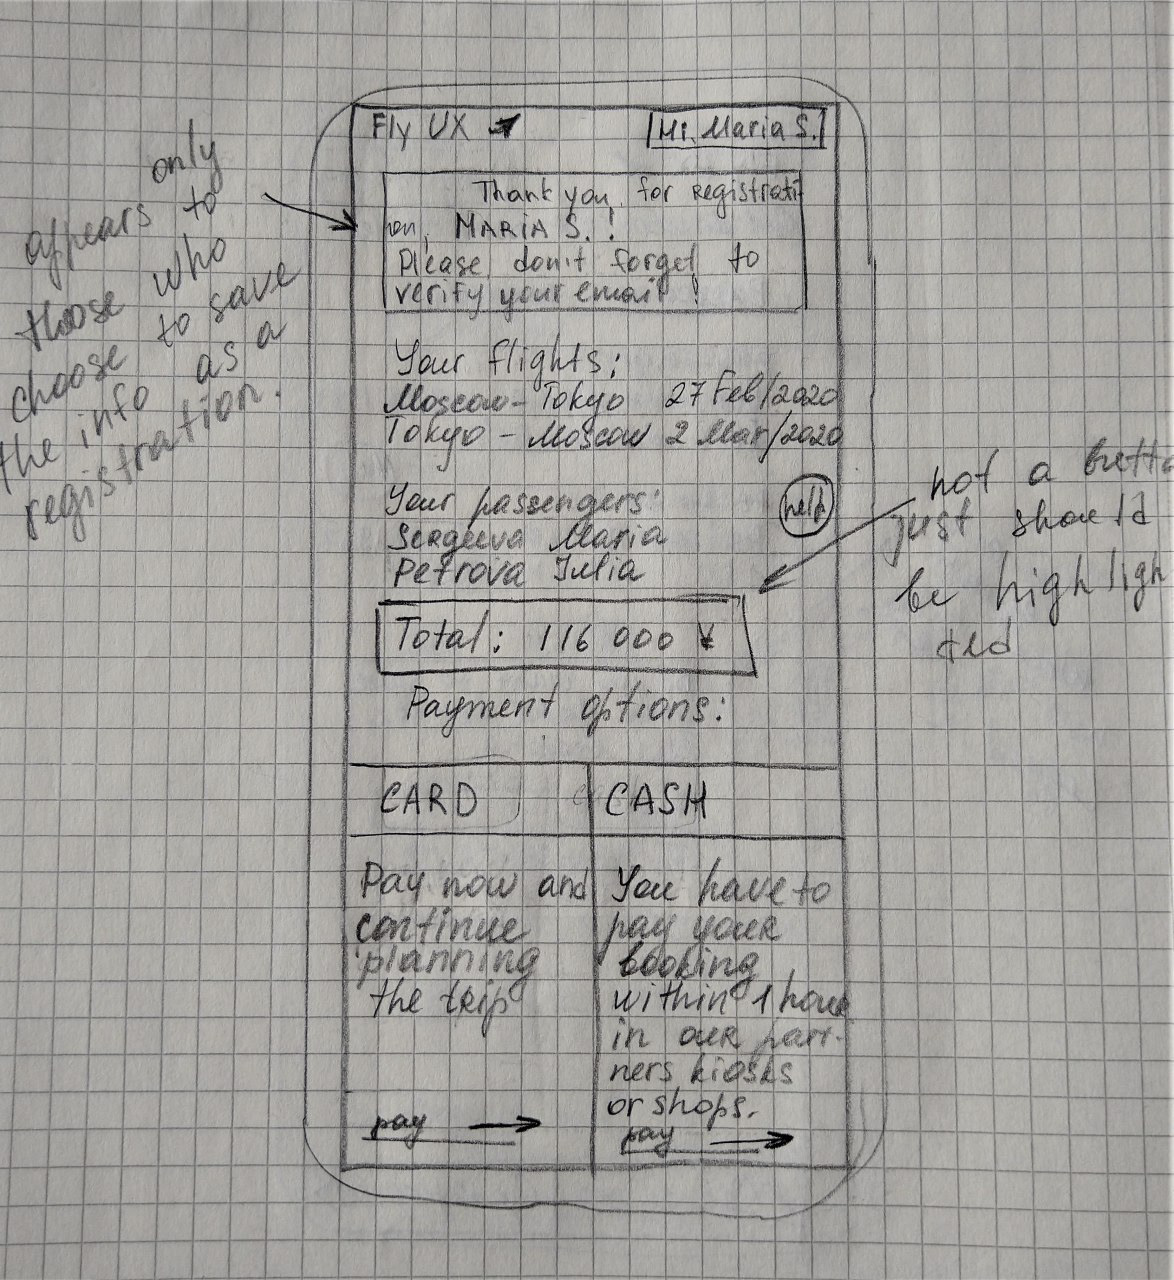 Fly UX
Hi, Maria S.
Thank you, for registrati
on, MARIA S.!
Please, don't forget to
verify your email!
Your flights:
Moscow - Tokyo 27 Feb/2020
Tokyo - Moscow 2 Mar/2020
Your passengers:
Sergeeva Maria
Petrova Julia
help
Total: 116 000 ¥
Payment options:
CARD
Pay now and
continue
planning
the trip
pay
CASH
You have to
pay your
booking
within 1 hour
in our part-
ners kiosks
or shops.
pay
only
appears to
those who
choose to save
the info as a
registration.
not a butto
just should
be highligh
ted